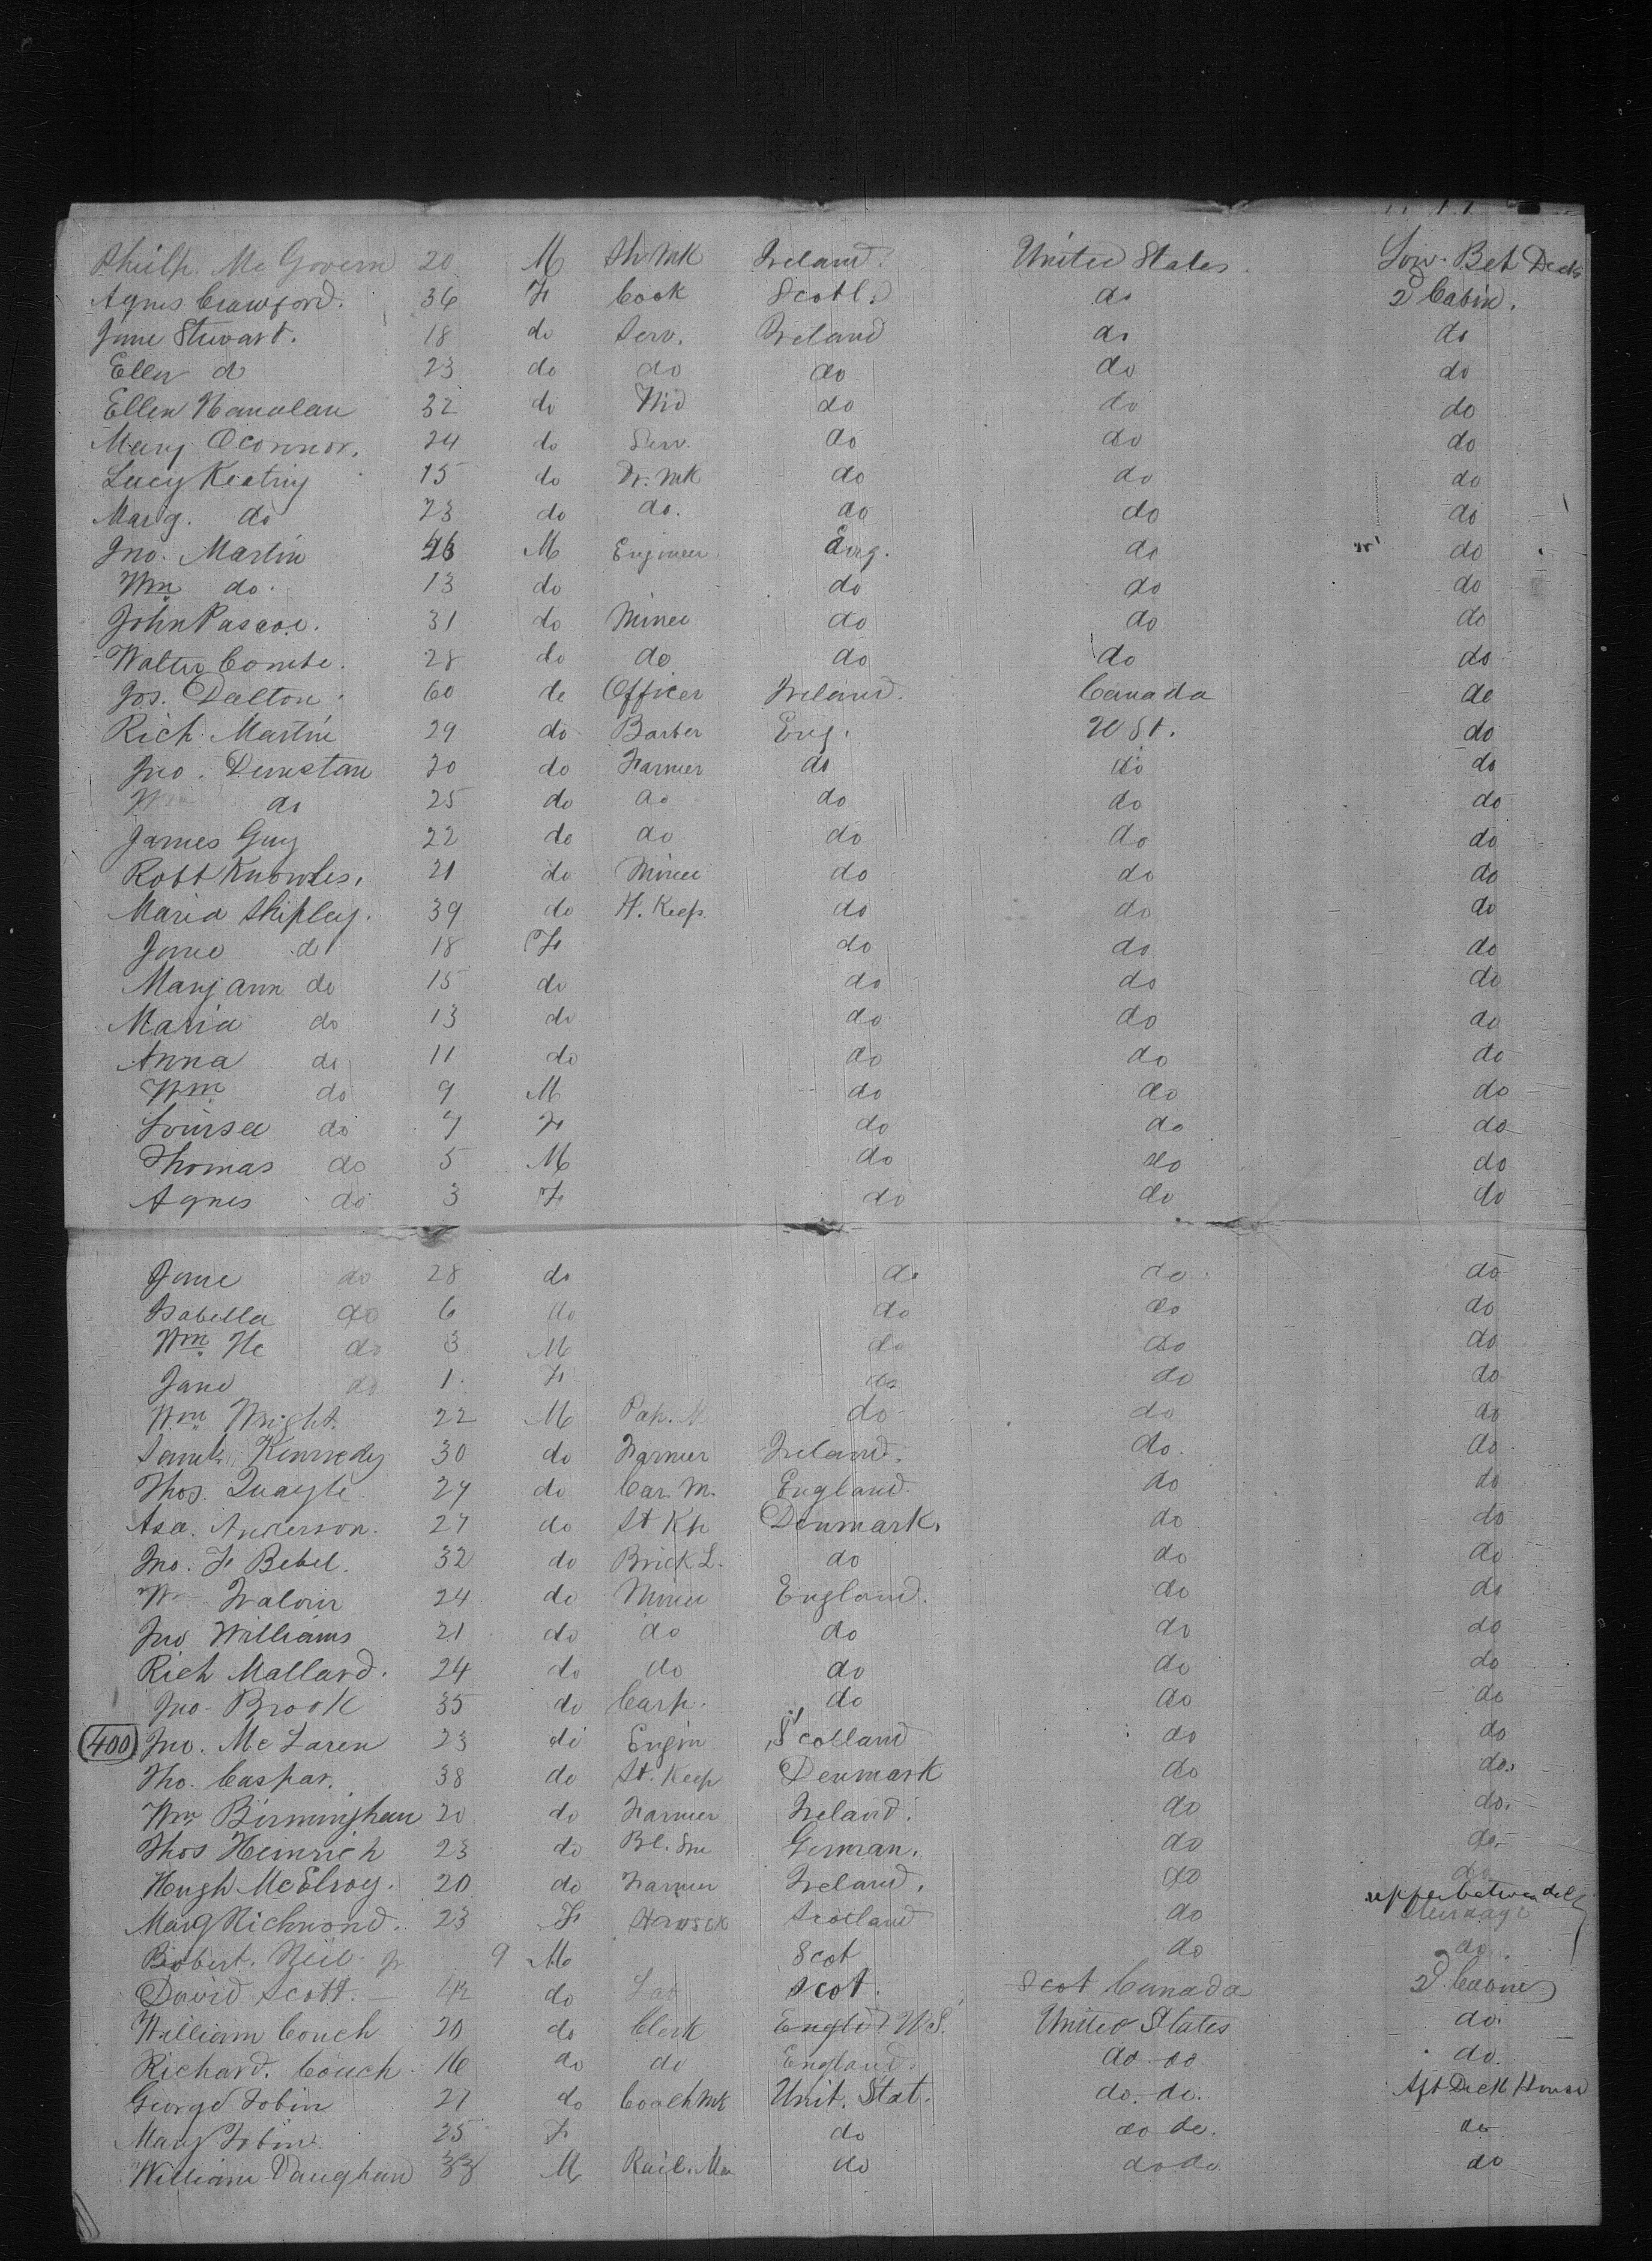 Philp. Mc Govern 20 M Sh Mk Ireland. United States. Low. Bet Decks
Agnes Crawford. 36 F Cook Scotl. do 2 Cabin.
Jane Stewart. 18 do Serv. Ireland do do
Ellen do 23 do do do do do
Ellen 32 do Wid do do do
Mary Oconnor. 24 do Serv. do do do
Lucy Keating 15 do Dr. Mk do do do
Marg. do 23 do do. do do do
Jno. Martin M Engineer Eng. do do
Wm do. 13 do do do do
John Pascoe. 31 do Miner do do do
Walter Combe. 28 do do do do do
Jos. Dalton. 60 do Officer Ireland. Canada do
Rich Martin 29 do Barber Eng. U St. do
Jno. Dunstan 20 do Farmer do do do
W do 25 do do do do do
James Guy 22 do do do do do
Robt Knowles. 21 do Miner do do do
Maria Shipley. 39 do H. Keep. do do do
Jane do 18 F do do do
Mary ann do 15 do do do do
Maria do 13 do do do do
Anna do 11 do do do do
Wm do 9 M do do do
Louisa do 7 F do do do
Thomas do 5 M do do do
Agnes do 3 F do do do
Jane do 28 do do do do
Isabella do 6 do do do do
Wm He do 3 M do do do
Jane do 1. F do do do
Wm Wright. 22 M Pap. M do do do
Saml Kennedy 30 do Farmer Ireland. do. do
Thos. Quayle. 24 do Car. M. England. do do
Asa. Anderson. 27 do St Kp Denmark. do do
Jno. F Bebel. 32 do Brick L. do do do
Wm 24 do Miner England. do do
Jno Williams 21 do do do do do
Rich Mallard. 24 do do do do do
Jno. Brook 35 do Carp. do do do
400 Jno. Mc Laren 23 do Engin Scotland do do
Tho. Caspar. 38 do St. Keep Denmark do do.
Wm Birmingham 20 do Farmer Ireland. do do.
Thos Heinrich 23 do Bl. Sm German. do do.
Hugh McElroy. 20 do Farmer Ireland. do do
Marg Richmond. 23 F Scotland do upper between deck Steerage
Robert. Neil. jr 9 M Scot do do.
David Scott. 42 do Scot. Scot Canada 2d. Cabin
William Couch 20 do Clerk Engld U S. United States do.
Richard. Couch. 16 do do England. do do do.
George Tobin 21 do Coach Mk Unit. Stat. do. do. Aft Deck House
Mary Tobin. 25 F do do do. do
William Vaughan M Rail. Mn do do do do